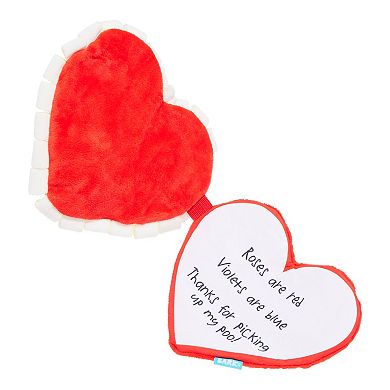 Roses are red
Violets are blue
Thanks for picking
up my poo!
BARK